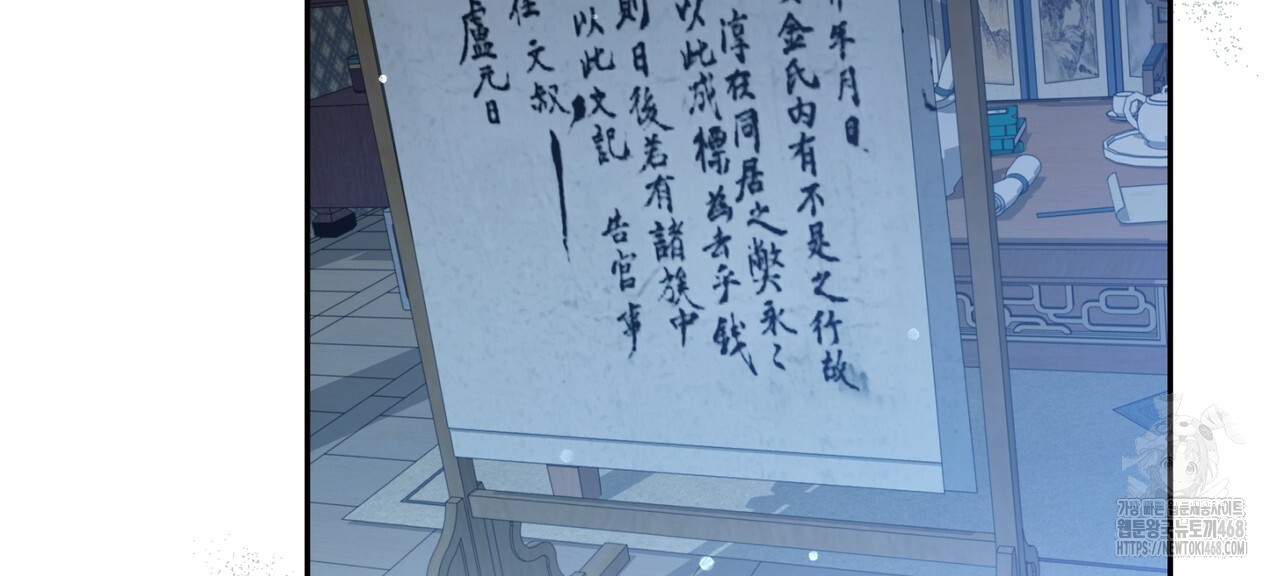 年月日
金氏內有不是之行故
淳在同居之弊永〻
以此成標爲去乎錢
則日後若有諸族中
以此文記 告官事
在文叔
盧元日
가장 빠른 웹툰제공사이트
웹툰왕국뉴토끼468
HTTPS://NEWTOKI468.COM